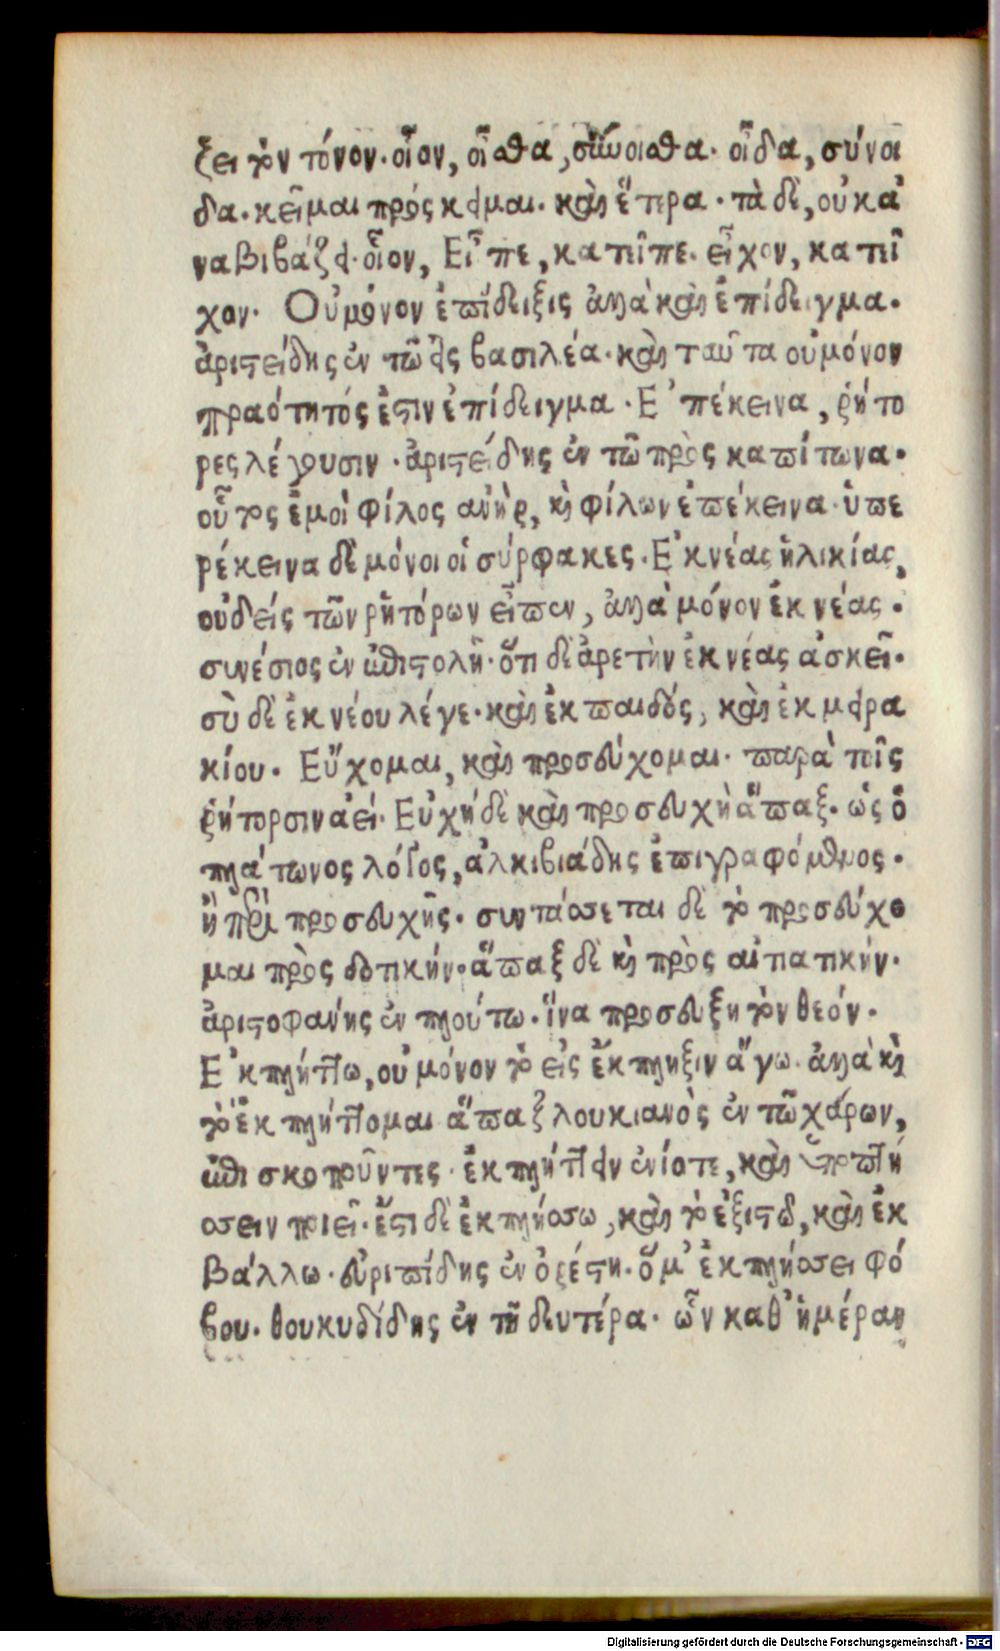 ξει τὸν τόνον· οἷον, οἶσθα, σύνοισθα· οἶδα, σύνοι
δα· κεῖμαι πρόςκειμαι· καὶ ἕτερα· τὰ δὲ, οὐκ ἀ
ναβιβάζει· οἷον, Εἶπε, κατεῖπε· εἶχον, κατεῖ
χον· Οὐ μόνον ἐπίδειξις ἀλλὰ καὶ ἐπίδειγμα·
ἀριστείδης ἐν τῶ εἰς βασιλέα· καὶ ταῦτα οὐ μόνον
πραότητός ἐστιν ἐπίδειγμα· Ἐπέκεινα, ῥήτο
ρες λέγουσιν· ἀριστείδης ἐν τῶ πρὸς καπίτωνα·
οὗτος ἐμοὶ φίλος ἀνὴρ, καὶ φίλων ἐπέκεινα· ὑπε
ρέκεινα δὲ μόνοι οἱ σύρφακες· Ἐκ νέας ἡλικίας,
οὐδεὶς τῶν ῥητόρων εἶπεν, ἀλλὰ μόνον ἐκ νέας·
συνέσιος ἐν ἐπιστολῇ· ὅτι δὲ ἀρετὴν ἐκ νέας ἀσκεῖ·
σὺ δὲ ἐκ νέου λέγε· καὶ ἐκ παιδός, καὶ ἐκ μειρα
κίου· Εὔχομαι, καὶ προσεύχομαι· παρὰ τοῖς
ῥήτορσιν ἀεί· Εὐχὴ δὲ καὶ προσευχὴ ἅπαξ· ὡς ὁ
πλάτωνος λόγος, ἀλκιβιάδης ἐπιγραφόμενος·
ἢ περὶ προσευχῆς· συντάσσεται δὲ τὸ προσεύχο
μαι πρὸς δοτικήν· ἅπαξ δὲ καὶ πρὸς αἰτιατικήν·
ἀριστοφάνης ἐν πλούτω· ἵνα προσεύξη τὸν θεόν·
Ἐκπλήττω, οὐ μόνον τὸ εἰς ἔκπληξιν ἄγω· ἀλλὰ καὶ
τὸ ἐκπλήττομαι ἅπαξ λουκιανὸς ἐν τῶ χάρων,
ἐπισκοποῦντες· ἐκπλήττειν ἐνίοτε, καὶ ὑποπτή
σσειν ποιεῖ· ἔστι δὲ ἐκπλήσσω, καὶ τὸ ἐξιστῶ, καὶ ἐκ
βάλλω· εὐριπίδης ἐν ὀρέστη· ὅ μ' ἐκπλήσσει φό
βου· θουκυδίδης ἐν τῇ δευτέρα· ὧν καθ' ἡμέραν
Digitalisierung gefördert durch die Deutsche Forschungsgemeinschaft - DFG